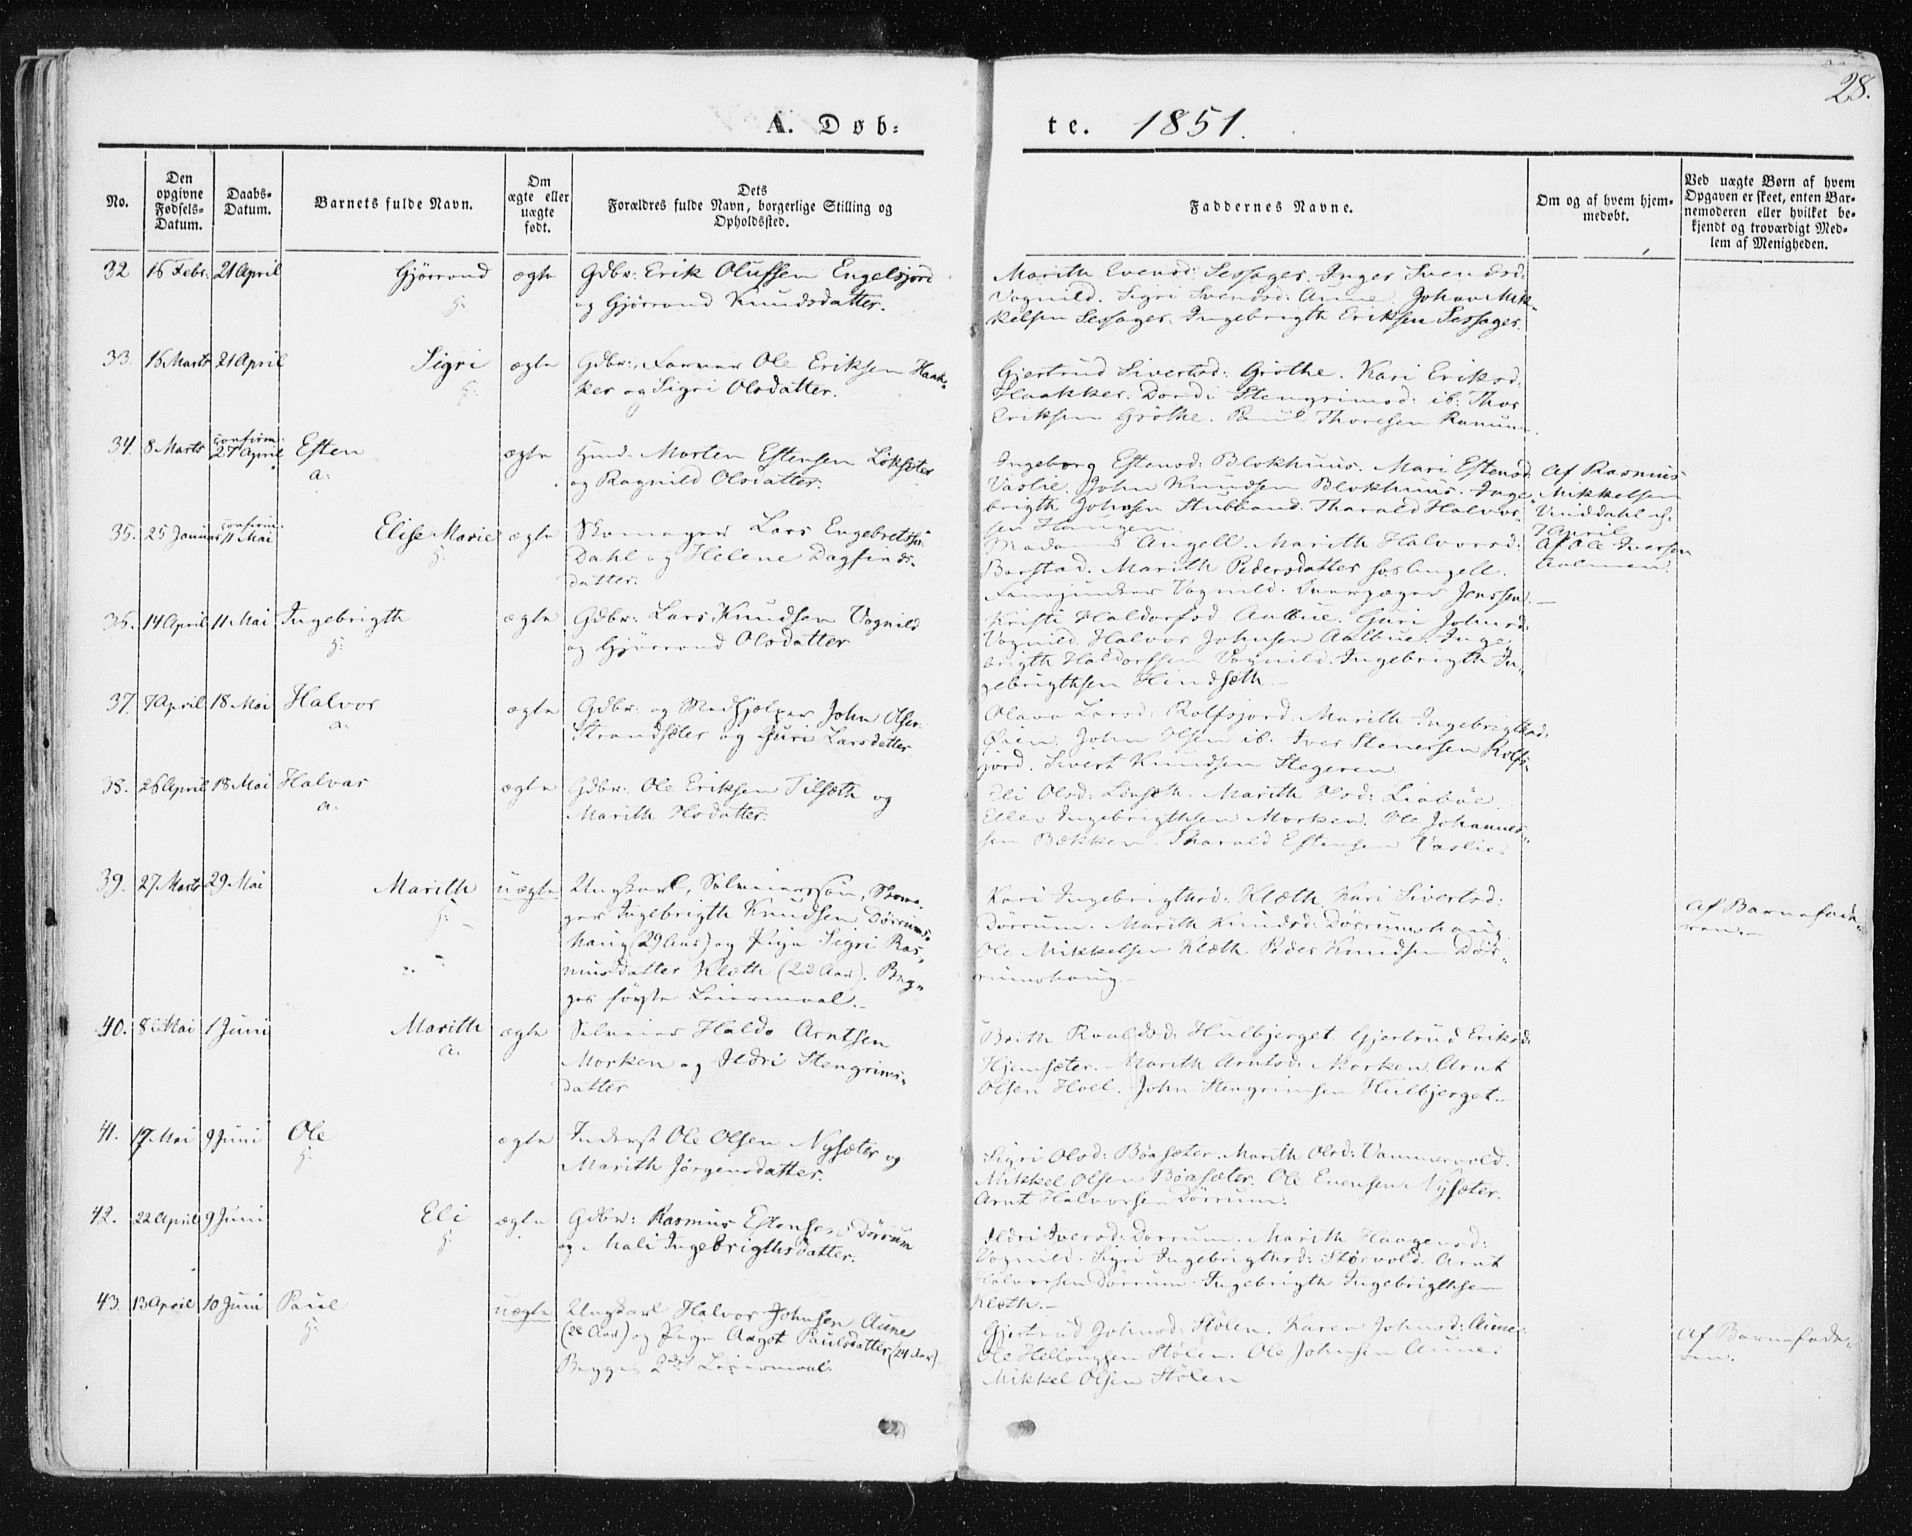 28.
A. Døb-
te. 1851.
No.
Den opgivne Fødsels-Datum.
Daabs-Datum.
Barnets fulde Navn.
Om ægte eller uægte født.
Dets Forældres fulde Navn, borgerlige Stilling og Opholdssted.
Faddernes Navne.
Om og af hvem hjemmedøbt.
Ved uægte Børn af hvem Opgaven er skeet, enten Barnemoderen eller hvilket bekjendt og troværdigt Medlem af Menigheden.
32 16 Febr. 21 April Gjørrond ægte Gdbr: Erik Olufsen Engelsjord
og Gjørrond Knudsdatter.
Marith Evensd: Sessager. Inger Svendsd:
Vognild. Sigri Svendsd: Aune. Johan Mik-
kelsen Sessager. Ingebrigth Eriksen Sessager.
33. 16 Marts 21 April Sigri ægte Gdbr: Ole Eriksen Haak-
ker og Sigri Olsdatter.
Gjertrud Sivertsd: Grøthe. Kari Eriksd:
Haakker. Dordi Stengrimsd: ib: Thor
Eriksen Grøthe. Thoresen
34. 8 Marts confirm. 27 April Esten a. ægte Huusm. Morten Estensen Løkseter
og Ragnild Olsdatter.
Ingeborg Estensd: Blokhuus. Mari Estensd
Vaslie. John Knudsen Blokhuus. Inge-
brigth Johnsen Stubband. Tharald Halvor-
sen Haugen.
Af Rasmus
Mikkelsen
Vinddahl
April
35. 25 Januar confirm. 11 Mai Elise Marie h: ægte Skomager Lars Engebretsen
Dahl og Helene Dagfinds-
datter.
Madame Angell. Marith Halvorsd:
Barstad. Marith Pedersdatter hos Angell.
Vognild. Jenssen.
Af Ole Iversen
Aalmen.
36. 14 April 11 Mai Ingebrigth h: ægte Gdbr: Lars Knudsen Vognild
og Gjørrond Olsdatter
Kristi Haldorsd. Aalbue. Guri Johnsd:
Vognild. Halvor Johnsen Aalbue. Inge-
brigth Haldorssen Vognild. Ingebrigth In-
gebrigthsen Hindseth.
37. 7 April 18 Mai Halvor a. ægte Gdbr: og Medhjelper John Olsen
Strandseter og Guri Larsdatter
Olava Larsd: Rolfsjord. Marith Ingebrigthsd:
Øien. John Olsen ib. Iver Stenersen Rolfs-
jord. Sivert Knudsen Stegeren.
38. 26 April 18 Mai Halvar a. ægte Gdbr: Ole Eriksen Tilseth og
Marith Olsdatter.
Eli Olsd: Marith Olsd: Liabøe.
Ingebrigthsen Morken. Ole Johannes-
sen Bækken. Tharald Estensen Vaslie.
39. 27 Marts 29 Mai Marith h: uægte Ungkarl, Selveiersøn, Skoma-
ger Ingebrigth Knudsen Dørrums-
haug (29 Aar) og Pige Sigri Ras-
musdatter Kleth (22 Aar). Beg-
ges første Leiermaal.
Kari Ingebrigthsd: Klæth. Kari Sivertsd:
Dørrum. Marith Knudsd: Dørrumshaug
Ole Mikkelsen Klæth. Peder Knudsen Dør-
rumshaug.
Af Barnefade-
ren.
40. 8 Mai 1 Juni Marith a. ægte Selveier Haldo Arntsen
Morken og Ildri Stengrims-
datter
Brith Roaldsd: Hulbjerget. Gjertrud Eriksd:
Hjemseter. Marith Arntsd: Morken. Arnt
Olsen Hoel. John Stengrimsen Hulbjerget.
41. 17 Mai 9 Juni Ole h: ægte Inderst Ole Olsen Nyseter og
Marith Jørgensdatter.
Sigri Olsd: Bøaseter. Marith Olsd: Vammervold.
Mikkel Olsen Bøaseter. Ole Evensen Nyseter.
Arnt Halvorsen Dørrum.
42. 22 April 9 Juni Eli h: ægte Gdbr: Rasmus Estensen Dørrum
og Mali Ingebrigthsdatter.
Ildri Iversd: Dørrum. Marith Haagensd:
Vognild. Sigri Ingebrigthsd: Størvold. Arnt
Halvorsen Dørrum. Ingebrigth Ingebrigthsen
Kleth.
43. 13 April 10 Juni Paul h: uægte Ungkarl Halvor Johnsen Aune
og Pige Aagot Paulsdatter (24 Aar)
Begges 2det Leiermaal.
Gjertrud Johnsd: Stølen. Karen Johnsd: Aune.
Ole Hellaugsen Stølen. Ole Johnsen Aune.
Mikkel Olsen Stølen
Af Barnefade-
ren.